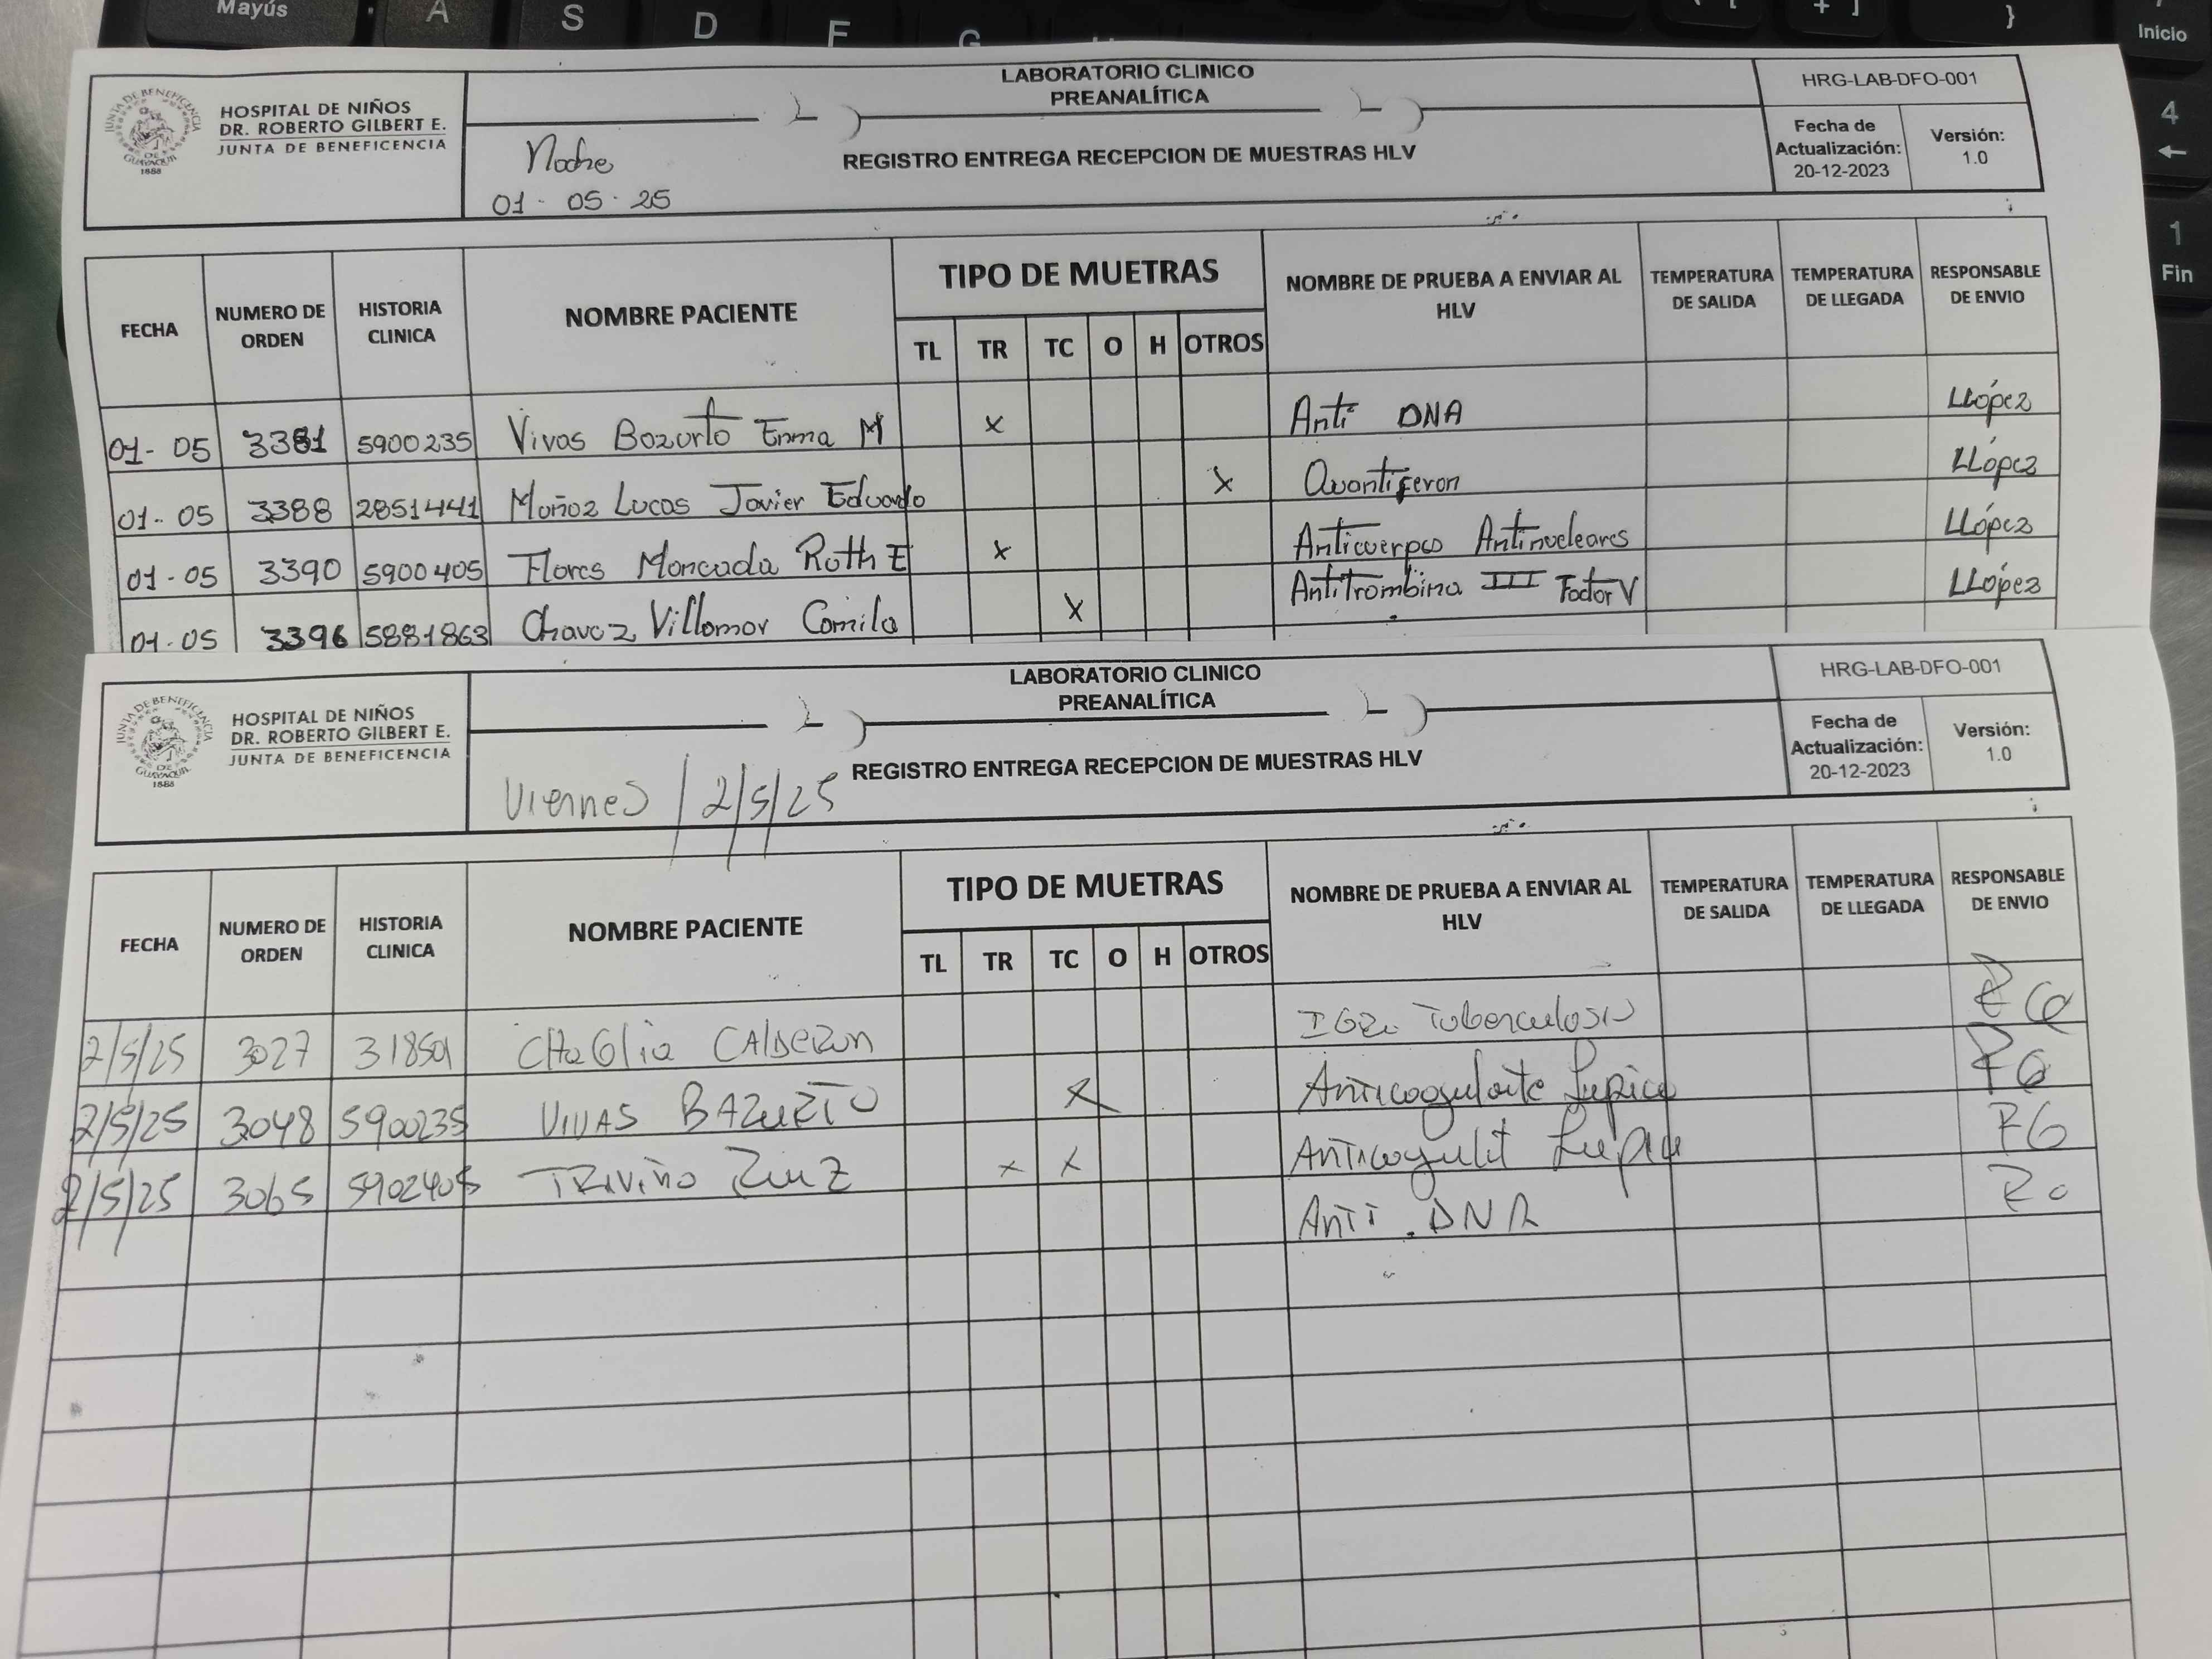 Mayús A S D F G
+ ] } Inicio
4
←
1
Fin
JUNTA DE BENEFICENCIA DE GUAYAQUIL 1888
HOSPITAL DE NIÑOS
DR. ROBERTO GILBERT E.
JUNTA DE BENEFICENCIA
LABORATORIO CLINICO
PREANALÍTICA
Noche
01-05-25
REGISTRO ENTREGA RECEPCION DE MUESTRAS HLV
HRG-LAB-DFO-001
Fecha de
Actualización:
20-12-2023
Versión:
1.0
FECHA NUMERO DE ORDEN HISTORIA CLINICA NOMBRE PACIENTE TIPO DE MUETRAS NOMBRE DE PRUEBA A ENVIAR AL HLV TEMPERATURA DE SALIDA TEMPERATURA DE LLEGADA RESPONSABLE DE ENVIO
TL TR TC O H OTROS
01-05 3381 5900235 Vivas Bazurto Emma M x Anti DNA LLópez
01-05 3388 2851441 Muñoz Lucas Javier Eduardo x Quantiferon LLópez
01-05 3390 5900405 Flores Moncada Ruth E x Anticuerpos Antinucleares LLópez
01-05 3396 5881863 Chavez Villamar Camila x Antitrombina III Factor V LLópez
JUNTA DE BENEFICENCIA DE GUAYAQUIL 1888
HOSPITAL DE NIÑOS
DR. ROBERTO GILBERT E.
JUNTA DE BENEFICENCIA
LABORATORIO CLINICO
PREANALÍTICA
Viernes / 2/5/25
REGISTRO ENTREGA RECEPCION DE MUESTRAS HLV
HRG-LAB-DFO-001
Fecha de
Actualización:
20-12-2023
Versión:
1.0
FECHA NUMERO DE ORDEN HISTORIA CLINICA NOMBRE PACIENTE TIPO DE MUETRAS NOMBRE DE PRUEBA A ENVIAR AL HLV TEMPERATURA DE SALIDA TEMPERATURA DE LLEGADA RESPONSABLE DE ENVIO
TL TR TC O H OTROS
2/5/25 3027 318501 CALDERON Tuberculosis
2/5/25 3048 5900235 VIVAS BAZURTO x Anticoagulante Lupico
2/5/25 3065 5902405 TRIVIÑO RUIZ x x
Anti . DNA